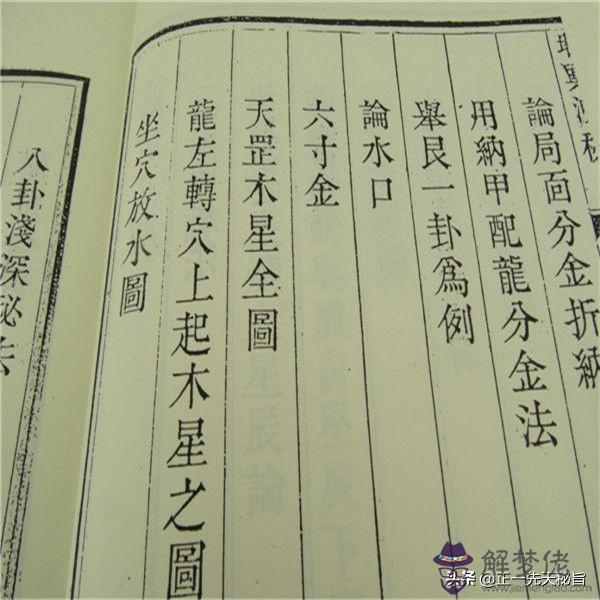 論局面分金折納
用納甲配龍分金法
舉艮一卦爲例
論水口
六寸金
天罡木星全圖
龍左轉穴上起木星之圖
坐穴放水圖
八卦淺深秘
解梦佬
www.jiemenglao.com
头条 @正一先天秘旨